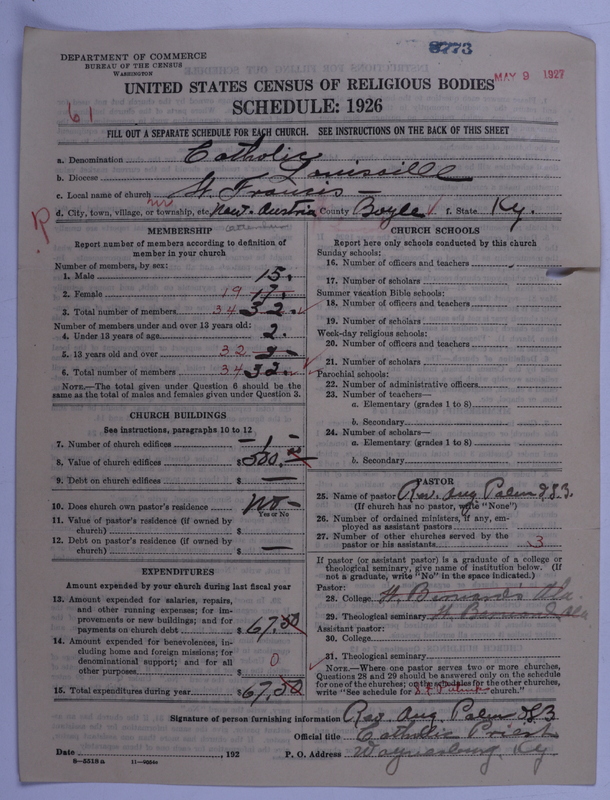 8773
DEPARTMENT OF COMMERCE
BUREAU OF THE CENSUS
WASHINGTON
MAY 9 1927
UNITED STATES CENSUS OF RELIGIOUS BODIES
SCHEDULE: 1926
61
FILL OUT A SEPARATE SCHEDULE FOR EACH CHURCH. SEE INSTRUCTIONS ON THE BACK OF THIS SHEET
a. Denomination Catholic
b. Diocese Louisville
c. Local name of church St. Francis
d. City, town, village, or township, etc. New-Austria County Boyle f. State Ky.
MEMBERSHIP
Report number of members according to definition of
member in your church
Number of members, by sex:
1. Male 15.
2. Female 19 17.
3. Total number of members 34 32
Number of members under and over 13 years old:
4. Under 13 years of age 2.
5. 13 years old and over 32
6. Total number of members 34 32
NOTE.—The total given under Question 6 should be the
same as the total of males and females given under Question 3.
CHURCH BUILDINGS
See instructions, paragraphs 10 to 12
7. Number of church edifices 1
8. Value of church edifices $500.00
9. Debt on church edifices $ —
10. Does church own pastor's residence? No
Yes or No
11. Value of pastor's residence (if owned by
church) $
12. Debt on pastor's residence (if owned by
church) $ —
EXPENDITURES
Amount expended by your church during last fiscal year
13. Amount expended for salaries, repairs,
and other running expenses; for im-
provements or new buildings; and for
payments on church debt $67,50
14. Amount expended for benevolences, in-
cluding home and foreign missions; for
denominational support; and for all
other purposes $ 0
15. Total expenditures during year $67,50
CHURCH SCHOOLS
Report here only schools conducted by this church
Sunday schools:
16. Number of officers and teachers
17. Number of scholars
Summer vacation Bible schools:
18. Number of officers and teachers
19. Number of scholars
Week-day religious schools:
20. Number of officers and teachers
21. Number of scholars
Parochial schools:
22. Number of administrative officers
23. Number of teachers—
a. Elementary (grades 1 to 8)
b. Secondary
24. Number of scholars—
a. Elementary (grades 1 to 8)
b. Secondary
PASTOR
25. Name of pastor Rev. Aug. Palm O.S.B.
(If church has no pastor, write "None")
26. Number of ordained ministers, if any, em-
ployed as assistant pastors
27. Number of other churches served by the
pastor or his assistants 3
If pastor (or assistant pastor) is a graduate of a college or
theological seminary, give name of institution below. (If
not a graduate, write "No" in the space indicated.)
Pastor:
28. College St. Bernards Ala
29. Theological seminary St. Bernard Ala
Assistant pastor:
30. College
31. Theological seminary
NOTE.—Where one pastor serves two or more churches,
Questions 28 and 29 should be answered only on the schedule
for one of the churches; on the schedules for the other churches,
write "See schedule for church."
Signature of person furnishing information Rev. Aug. Palm O.S.B.
Official title Catholic Priest
Date , 192 P. O. Address Waynesburg, Ky
8—5518a 11—9664